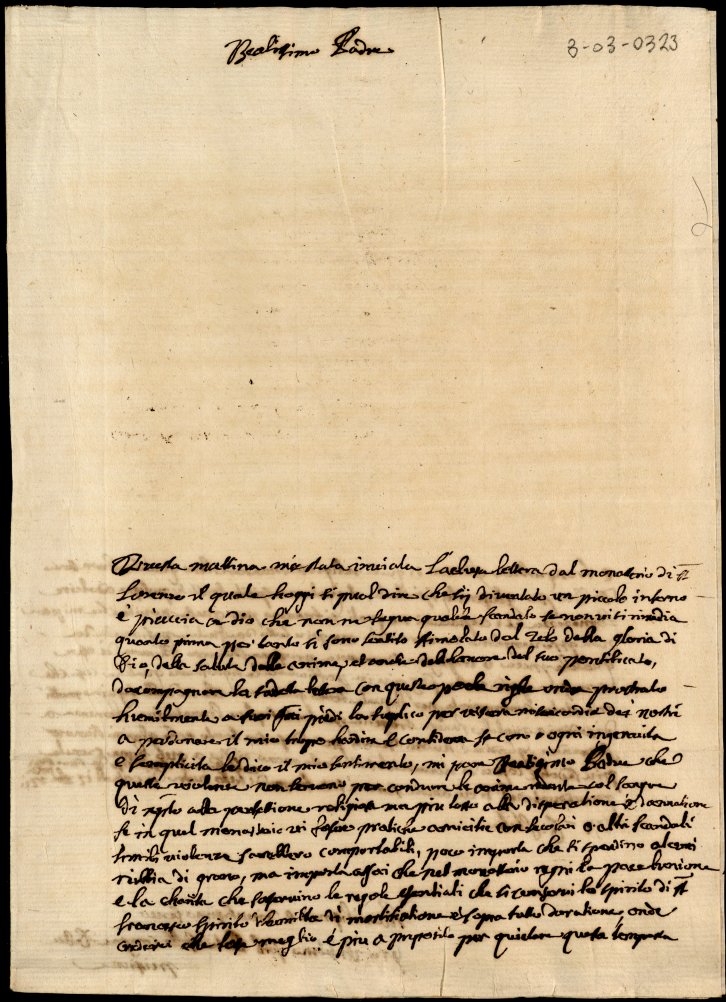 Beatissimo Padre
3-03-0323
Questa mattina m'è stata inviata l'aclusa lettera dal monasterio di S.
Lorenzo il quale hoggi si puol dire che sij diventato un piccolo inferno
e piaccia a dio che non ne segua qualche scandalo se non vi si rimedia
quanto prima per tanto mi sono sentito stimolato dal zelo della gloria di
Dio, della salute delle anime, et anche dell'honore del suo pontificato,
d'acompagnar la sudeta lettera con queste poche righe onde prostrato
humilmente a suoi piedi la suplico per viscera misericordie dei nostri
a perdonare il mio tropo hardire e confidenza con ogni ingenuita
e semplicita le dico il mio sentimento, mi pare Beatissimo Padre che
queste violenze non servono per condurre le anime col sangue
di alla perfettione religiosa ma piu tosto alla disperatione e dannatione
se in quel monastero vi fossero pratiche amicitie con secolari o altri scandali
simili violenze sarebbero comportabili, poco importa che si perdino alcuni
rubbia di grano, ma importa assai che nel monasterio regni la pace l'unione
e la charita che s'osservino le regole essentiali che si conservi lo spirito di S.
Francesco spirito d'humilta di mortificatione e sopra tutto d'oratione, onde
meglio e piu a proposito per quietare questa tempesta